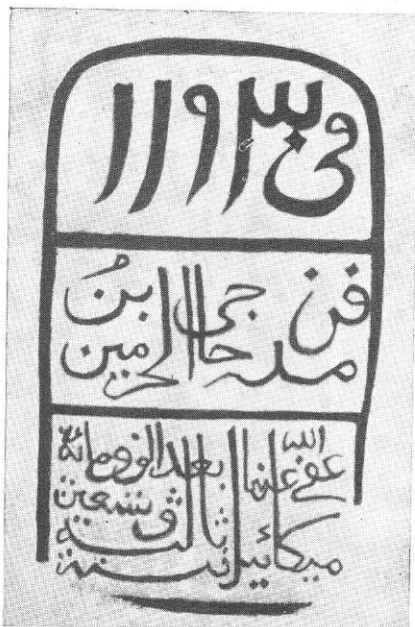 فى ١١٩٣
فن حاجى ابن
مده الحرمين
عفى الله عنهما بعد الف ومائة
ثالثة وتسعين
ميكائيل سنة